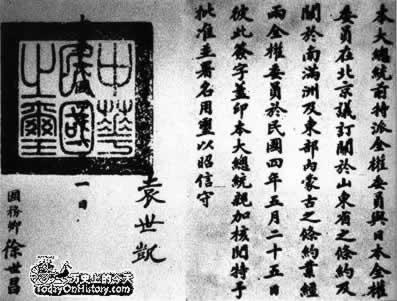 本大總統前特派全權委員與日本全權
委員在北京議訂關於山東省之條約及
關於南滿洲及東部內蒙古之條約業經
兩全權委員於民國四年五月二十五日
彼此簽字蓋印本大總統親加核閱特予
批准並署名用璽以昭信守
袁世凱
中華民國之璽
一日
國務卿 徐世昌
历史上的今天
TodayOnHistory.com